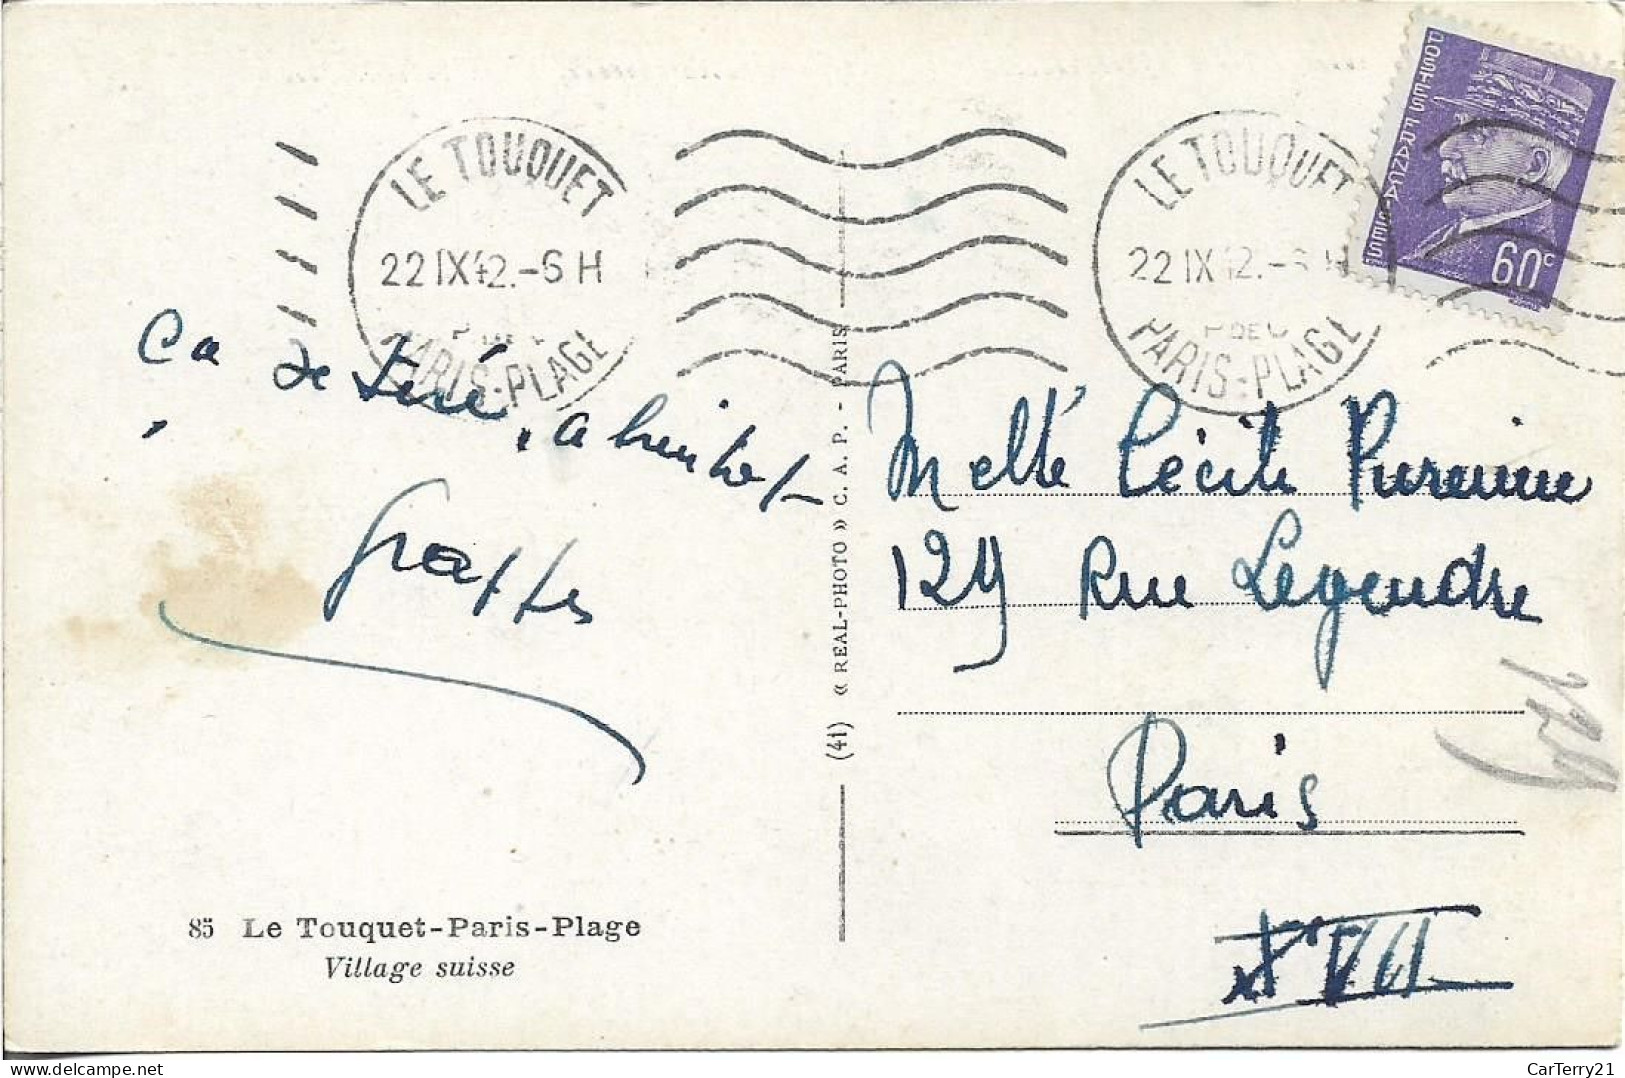 LE TOUQUET
22 IX 42.-6 H
PARIS-PLAGE
LE TOUQUET
22 IX 42.-6 H
P DE C
PARIS-PLAGE
POSTES FRANÇAISES
60c
Ca
a
Melle Cécile
129 Rue Legendre
Paris
XVII
129
(41) « REAL-PHOTO » C. A. P. - PARIS
85 Le Touquet-Paris-Plage
Village suisse
CarTerry21